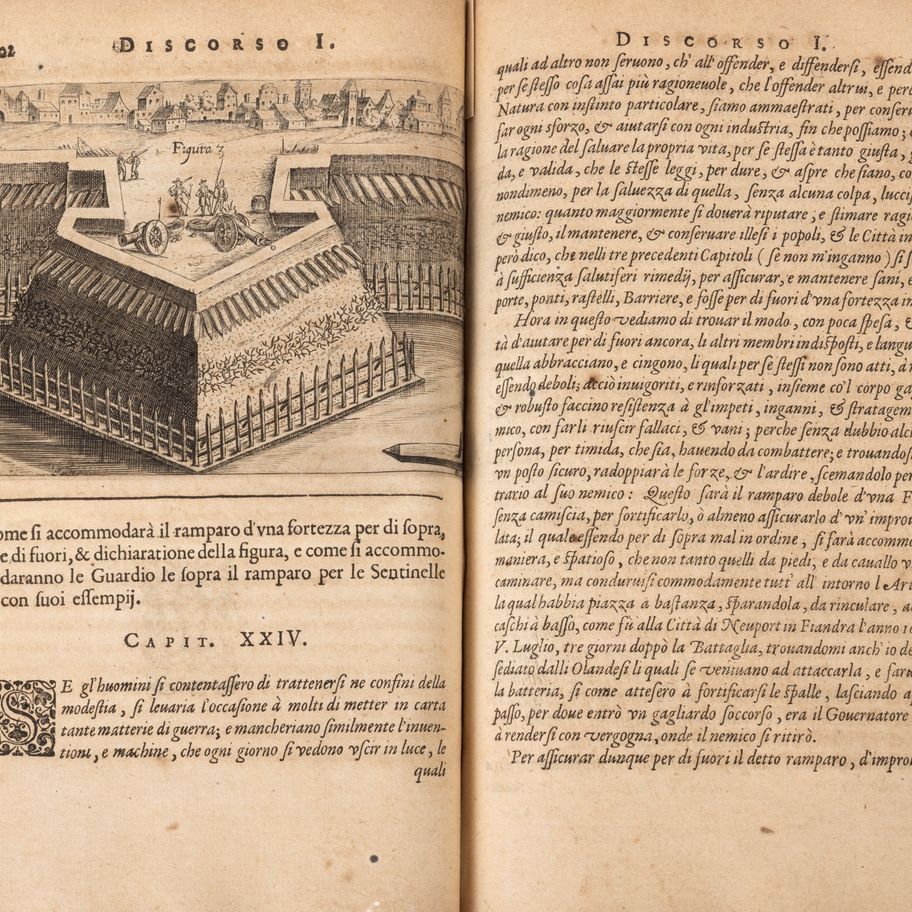 02 DISCORSO I.
Figura 3
ome si accommodarà il ramparo d'vna fortezza per di sopra,
e di fuori, & dichiaratione della figura, e come si accommo-
daranno le Guardio le sopra il ramparo per le Sentinelle
con suoi essempij.
CAPIT. XXIV.
SE gl'huomini si contentassero di trattenersi ne confini della
modestia, si leuaria l'occasione à molti di metter in carta
tante matterie di guerra; e mancheriano similmente l'inuen-
tioni, e machine, che ogni giorno si vedono vscir in luce, le
quali
DISCORSO I.
quali ad altro non seruono, ch'all'offender, e diffendersi, essend
per se stesso cosa assai più ragioneuole, che l'offender altrui, e perc
Natura con instinto particolare, siamo ammaestrati, per conser
far ogni sforzo, & aiutarsi con ogni industria, fin che possiamo;
la ragione del saluare la propria vita, per se stessa è tanto giusta,
da, e valida, che le stesse leggi, per dure, & aspre che siano, co
nondimeno, per la saluezza di quella, senza alcuna colpa, lucci
nemico: quanto maggiormente si douerà riputare, e stimare ragi
& giusto, il mantenere, & conseruare illesi i popoli, & le Città in
però dico, che nelli tre precedenti Capitoli (se non m'inganno) si s
à sufficienza salutiferi rimedij, per assicurar, e mantenere sani, e
porte, ponti, rastelli, Barriere, e fosse per di fuori d'vna fortezza in
Hora in questo vediamo di trouar il modo, con poca spesa, &
tà d'aiutare per di fuori ancora, li altri membri indisposti, e langu
quella abbracciano, e cingono, li quali per se stessi non sono atti, à r
essendo deboli; acciò inuigoriti, e rinforzati, insieme co'l corpo ga
& robusto faccino resistenza à gl'impeti, inganni, & stratagem
mico, con farli riuscir fallaci, & vani; perche senza dubbio alc
persona, per timida, che sia, hauendo da combattere; e trouandos
vn posto sicuro, radoppiarà le forze, & l'ardire, scemandolo per
trario al suo nemico: Questo sarà il ramparo debole d'vna F
senza camiscia, per fortificarlo, ò almeno assicurarlo d'vn'improu
lata; il quale essendo per di sopra mal in ordine, si farà accommo
maniera, e spatioso, che non tanto quelli da piedi, e da cauallo v
caminare, ma conduruisi commodamente tutt'all'intorno l'Art
la qual habbia piazza à bastanza, sparandola, da rinculare, a
caschi à basso, come fù alla Città di Neuport in Fiandra l'anno 16
V. Luglio, tre giorni doppò la Battaglia, trouandomi anch'io de
sediato dalli Olandesi li quali se veniuano ad attaccarla, e faru
la batteria, si come attesero à fortificarsi le spalle, lasciando a
passo, per doue entrò vn gagliardo soccorso, era il Gouernatore
à rendersi con vergogna, onde il nemico si ritirò.
Per assicurar dunque per di fuori il detto ramparo, d'improu